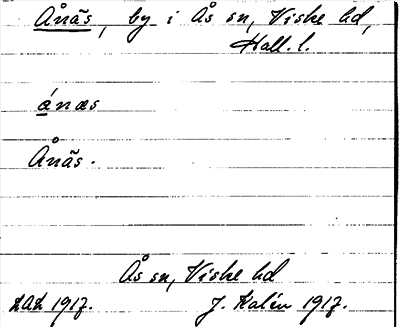 Ånäs, by i Ås sn, Viske hd,
Hall. l.
ánæs
Ånäs.
Ås sn, Viske hd
LAL 1917.
J. Kalén 1917.